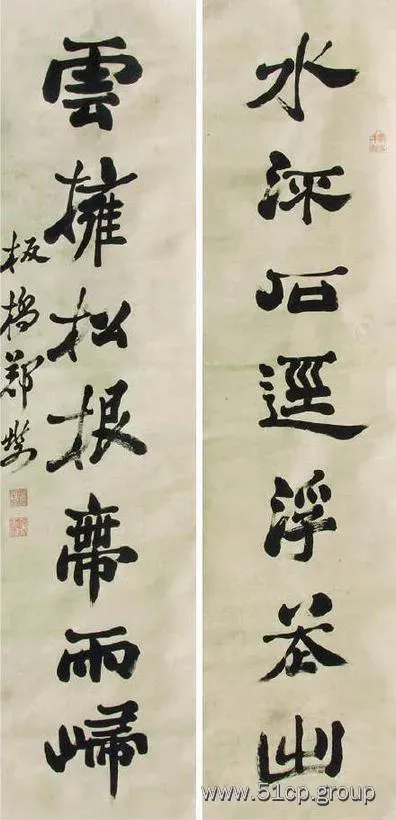 水深石逕浮花出
雲擁松根帶雨歸
板橋鄭燮
www.51cp.group